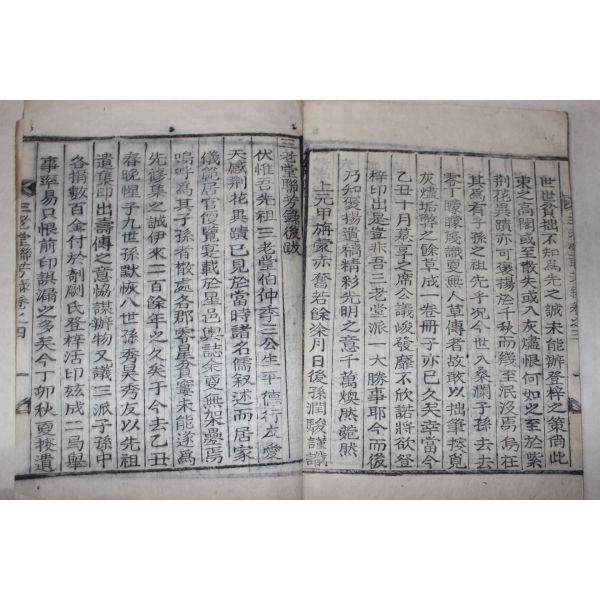 世世貧拙不知爲先之誠未能辦登梓之策尚此
束之高閣或至散失或入灰燼恨何如之至於紫
荊花異蹟亦可褒揚於千秋而幾至泯沒焉烏在
其爲有子孫之祖先乎况今世入桑瀾子孫去去
零丁曚曚淺識更無人草傳者故敢以拙筆搜覓
灰燼垢弊之餘草成一卷冊子亦已久矣幸當今
乙丑十月墓享之席公議峻發靡不欣諾將欲登
梓印出是豈非吾三老堂派一大勝事耶今而後
乃知褒揚遺稿精彩光明之意千萬煥然菀然
上元甲旃蒙赤奮若餘柒月日後孫潤駿謹識
三老堂聯芳錄後跋
伏惟吾先祖三老堂伯仲季三公生平德行友愛
天感荊花異蹟已見於當時諸名儒叙述而居家
儀範居官優覽宴載於星邑輿誌余更無架疊焉
嗚呼爲其子孫者散處各郡零星身窶未能遂爲
先修集之誠伊來二百餘年之久矣于今去乙丑
春晚悝子九世孫默恢八世孫秀昊秀友以先祖
遺集印出壽傳之意恊謀辦物又議三派子孫中
各捐數百金付於剞劂氏登梓活印玆成二局擧
事率易只恨前印誤漏之多矣今丁卯秋更搜遺
三老堂聯芳錄卷之四